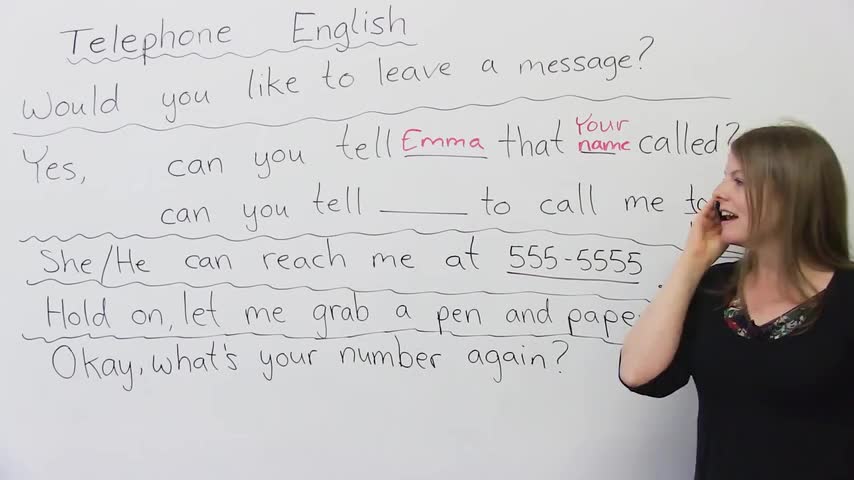 Telephone English
Would you like to leave a message?
Yes, can you tell Emma that Your name called?
can you tell ______ to call me
She/He can reach me at 555-5555.
Hold on, let me grab a pen and
Okay, what's your number again?